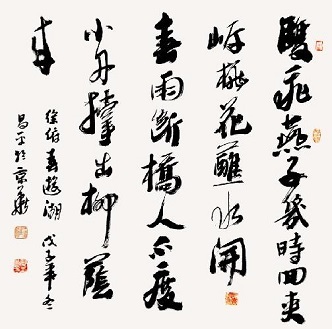 雙飛燕子幾時回夾
岸桃花蘸水開
春雨斷橋人不度
小舟撐出柳蔭
來
徐俯春遊湖 戊子年冬
於京華